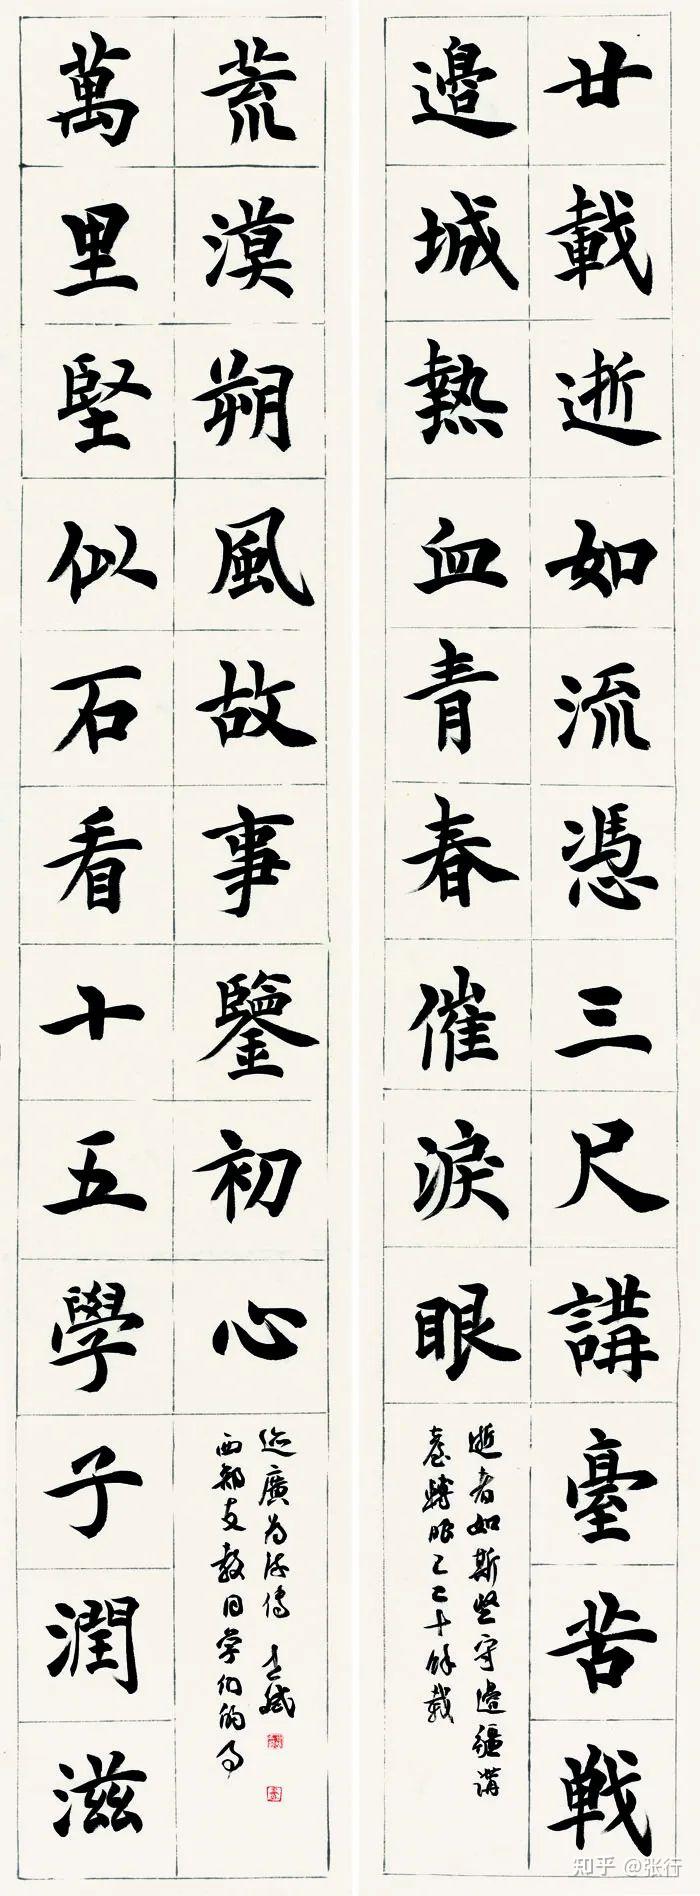 廿載逝如流憑三尺講臺苦戦
邊城熱血青春催淚眼
逝者如斯堅守邊疆講
臺轉眼已二十餘載
萬里堅似石看十五學子潤滋
荒漠朔風故事鑒初心
西部支教同學們的事
迹廣為流傳
知乎 @张行